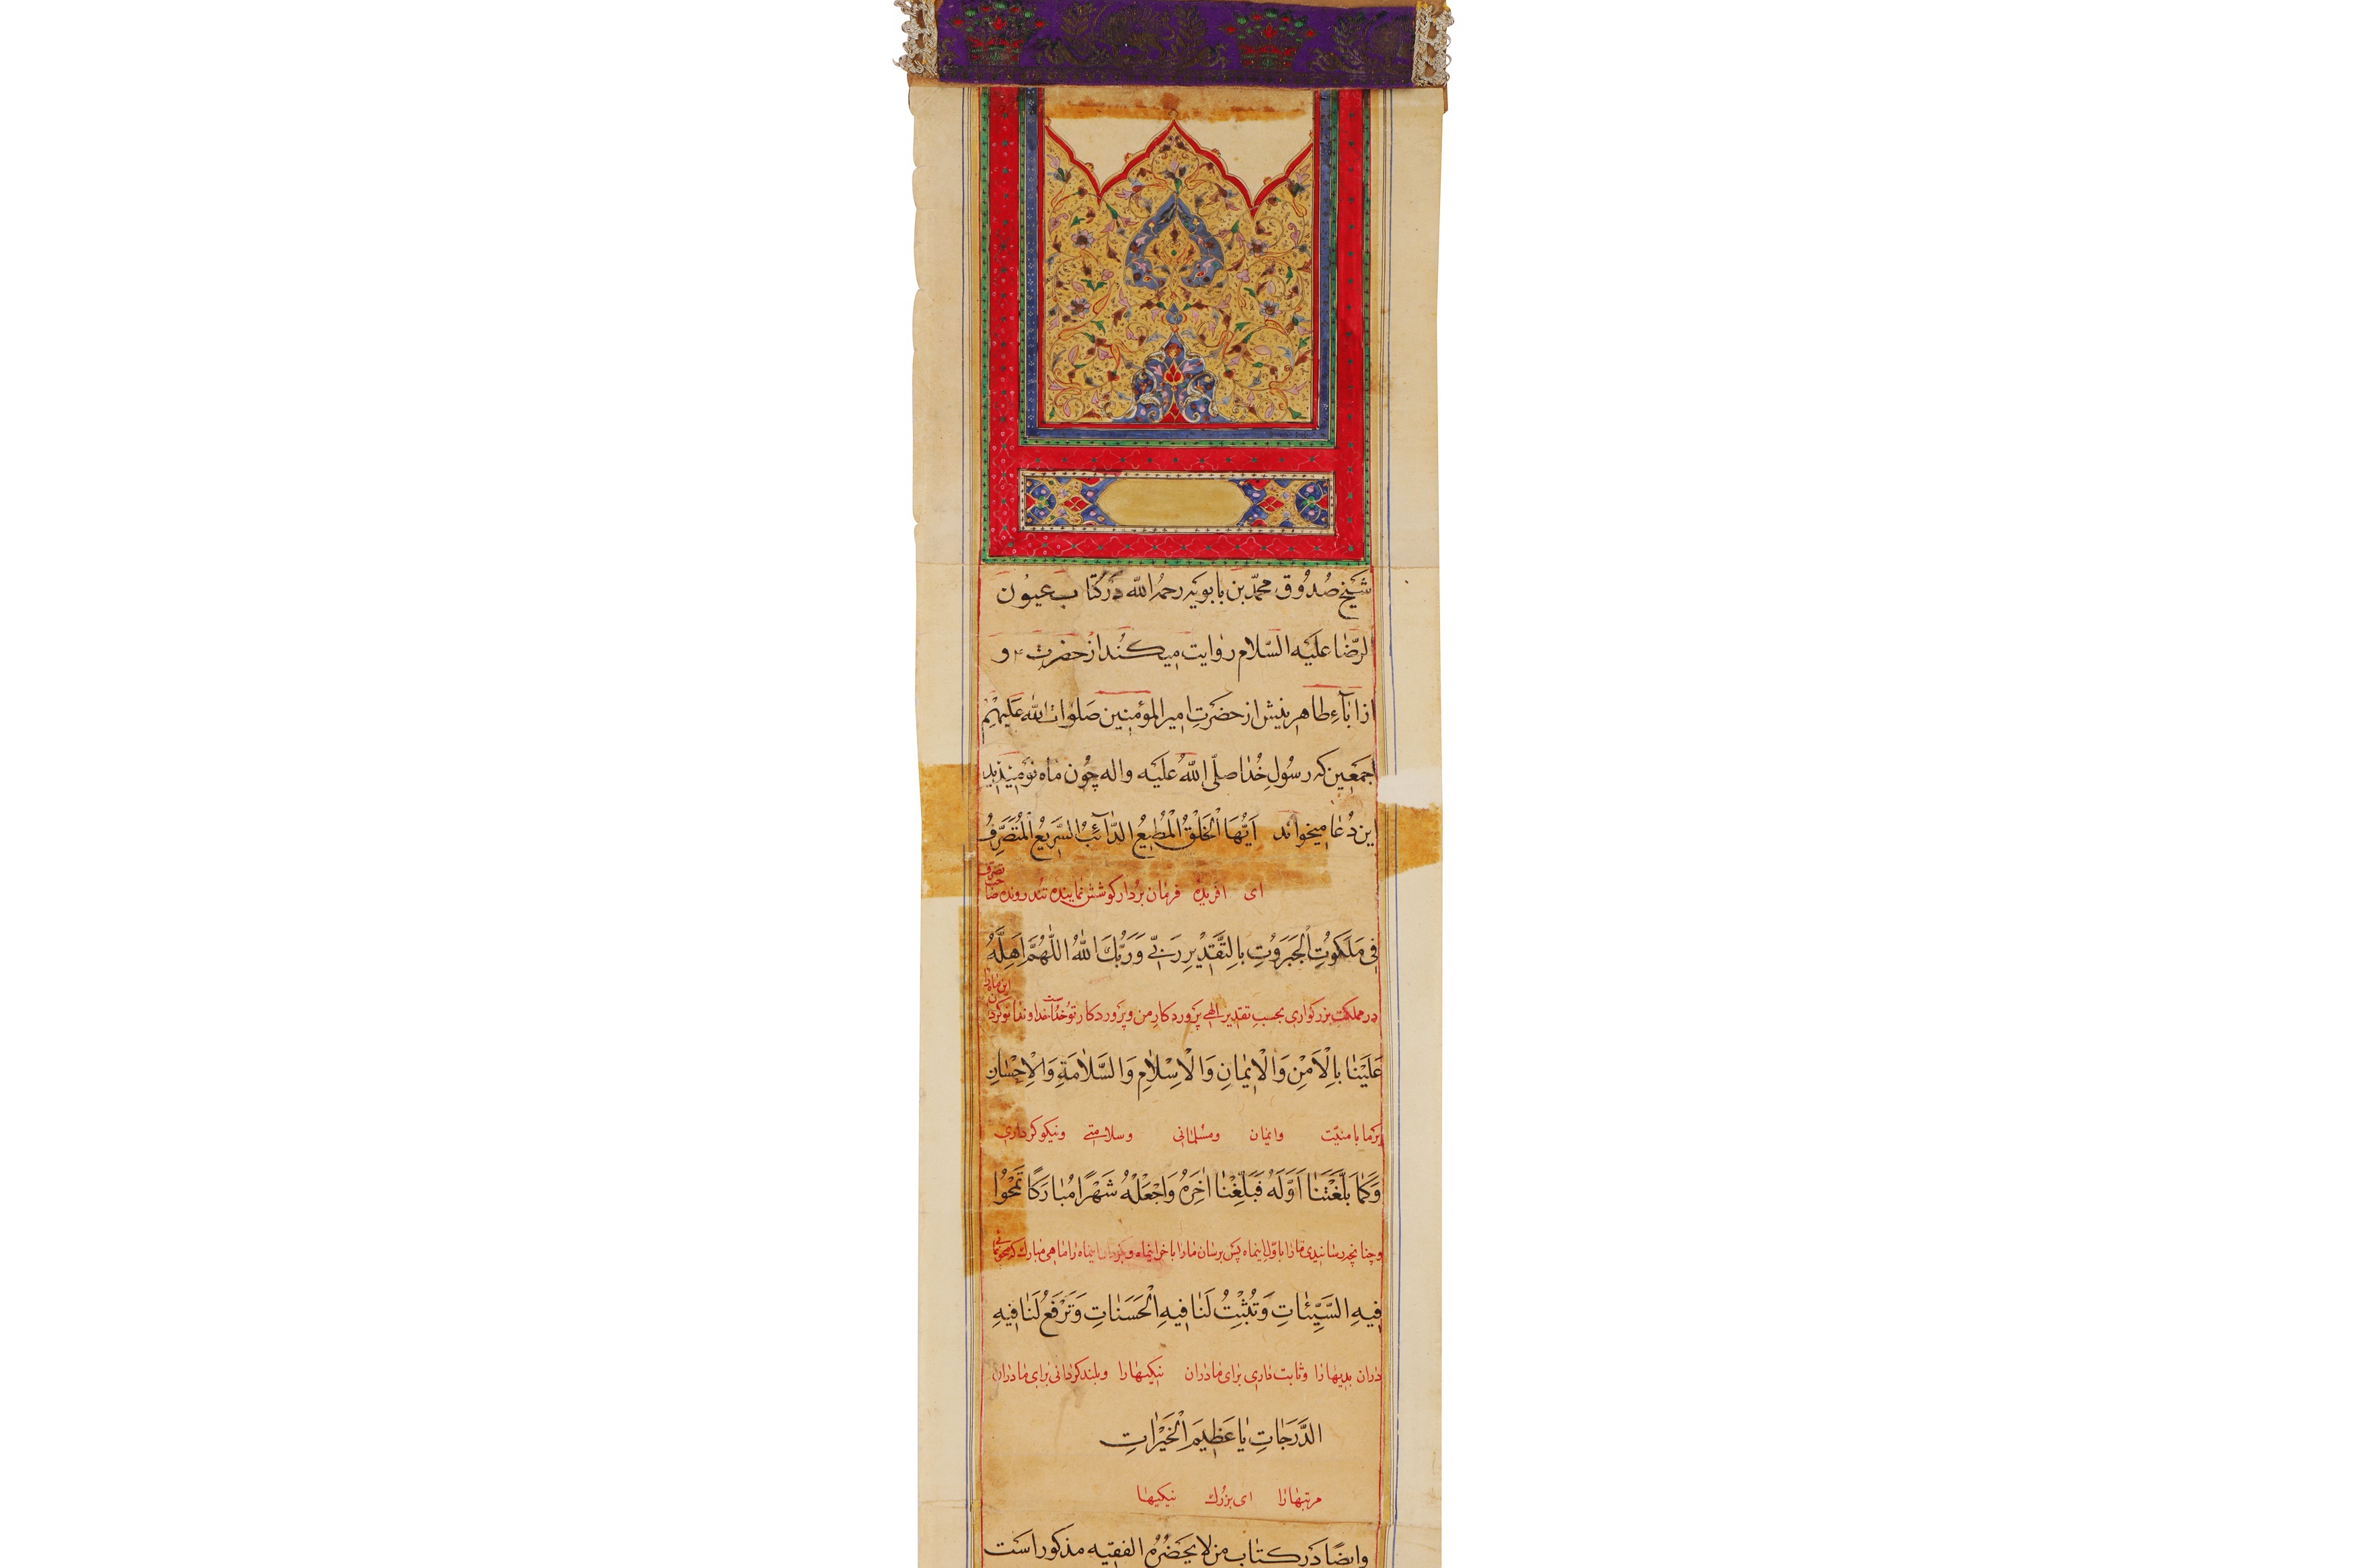 شَیْخ صُدُوق محمّد بن بابویَه رحمهُ الله دَر کتاب عیوُن
الرّضٰا عَلیَه السّلام رِوٰایت میکُنَد از حضرتِ ۴ و
از اٰبآءِ طاهرینِش از حضَرتِ امیر المؤمنین صَلوٰات الله عَلیهِم
اجمَعین که رسُولِ خُدٰا صلّی اللهُ علیَه واله چُون مٰاه نَو میدید
این دُعٰا میخواند اَیُّهَا الْخَلْقُ الْمُطیعُ الدّٰآئِبُ السَّریعُ الْمُتَصَرِّفُ
ای افریدهٔ فرمٰان بُردٰار کوشش نمٰاینده تُند رونده صٰاحب تصرّف
فی مَلَکُوتِ الْجَبَرُوتِ بِالتَّقْدیرِ رَبّی وَرَبُّكَ اللّٰهُ اَللّٰهُمَّ اَهِلَّهُ
در مملکت بزرکواری بحسبِ تقدیر الهی پَروردکارِ من و پَروردکار توُ خُدٰاست خداوندٰا نو کردٰان این مٰاه رٰا
عَلَیْنٰا بِالْاَمْنِ وَالْایمٰانِ وَالْاِسْلٰامِ وَالسَّلٰامَةِ وَالْاِحْسٰانِ
بَر مٰا بامنیّت وایمٰان ومسُلمٰانی وسلامتی ونیکو کردٰاری
وَکَمٰا بَلَّغْتَنٰا اَوَّلَهُ فَبَلِّغْنٰا اٰخِرَهُ وَاجْعَلْهُ شَهْرًا مُبٰارَکًا تَمْحُوٰا
وچنانچه رسٰانیدی مٰارٰا باوّل اینماه پس برسٰان مٰارا باخر اینماه و بکردان اینماه رٰا مٰاهی مُبارك که محو نمٰائی
فیهِ السَّیِّئٰاتِ وَتُثْبِتُ لَنٰا فیهِ الْحَسَنٰاتِ وَتَرْفَعُ لَنٰا فیهِ
دران بدیهٰا رٰا وثابت دٰاری برٰای مٰا دران نیکیهٰا رٰا وبلند کردٰانی برٰای مٰا دران
الدَّرَجٰاتِ یٰا عَظیمَ الْخَیْرٰاتِ
مرتبهٰا رٰا ای بزرك نیکیهٰا
وایضًا دَر کتٰاب من لا یَحضُرُهُ الفقیه مذکور اسَت